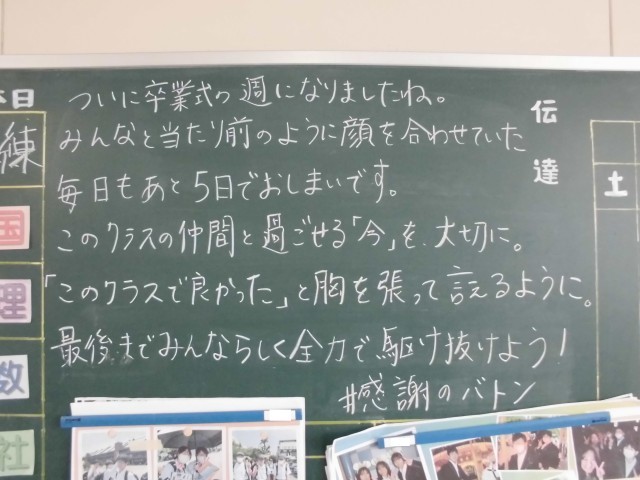 ついに卒業式の週になりましたね。
みんなと当たり前のように顔を合わせていた
毎日もあと5日でおしまいです。
このクラスの仲間と過ごせる「今」を、大切に。
「このクラスで良かった」と胸を張って言えるように。
最後までみんならしく全力で駆け抜けよう!
#感謝のバトン
伝達
土
本日
練
国
理
数
社